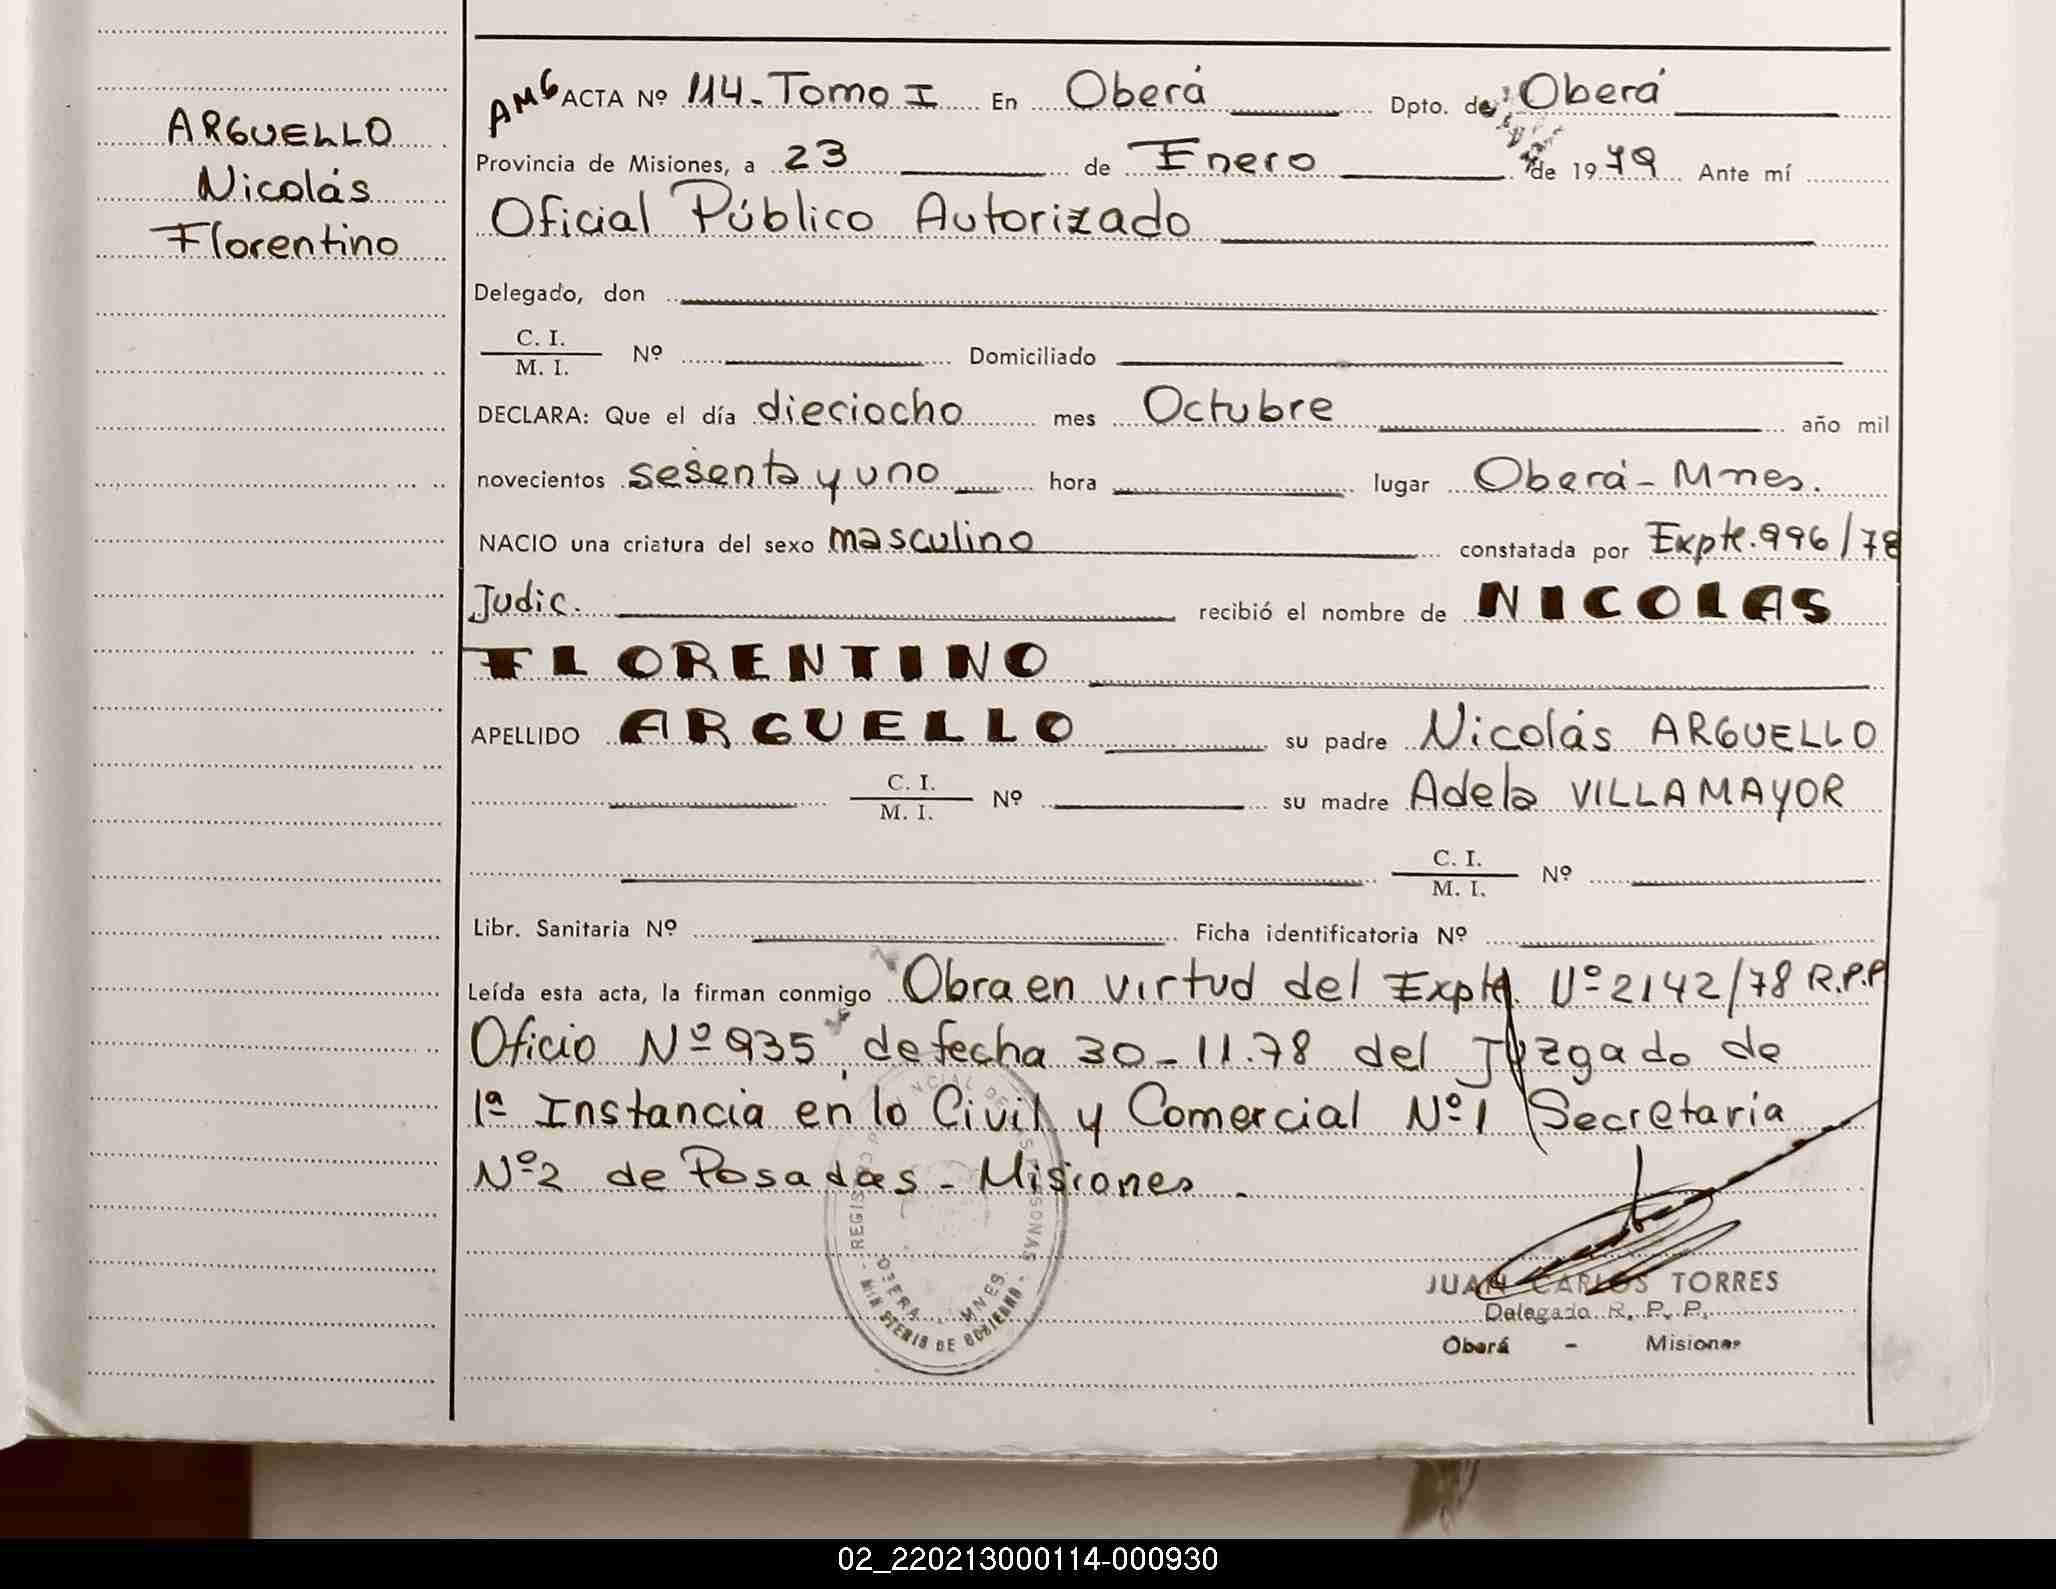 ARGUELLO
Nicolás
Florentino
AMG ACTA Nº 114-Tomo I En Oberá Dpto. de Oberá
Provincia de Misiones, a 23 de Enero de 1979 Ante mí
Oficial Público Autorizado
Delegado, don
C. I.
M. I. Nº Domiciliado
DECLARA: Que el día dieciocho mes Octubre año mil
novecientos sesenta y uno hora lugar Oberá - Mnes.
NACIO una criatura del sexo masculino constatada por Expte. 996/78
Judic. recibió el nombre de NICOLAS
FLORENTINO
APELLIDO ARGUELLO su padre Nicolás ARGUELLO
C. I.
M. I. Nº su madre Adela VILLAMAYOR
C. I.
M. I. Nº
Libr. Sanitaria Nº Ficha identificatoria Nº
Leída esta acta, la firman conmigo Obra en virtud del Expte. Nº 2142/78 R.P.P
Oficio Nº 935, de fecha 30-11.78 del Juzgado de
1ª Instancia en lo Civil y Comercial Nº 1 Secretaría
Nº 2 de Posadas - Misiones.
JUAN CARLOS TORRES
Delegado R. P. P.
Oberá - Misiones
MINISTERIO DE GOBIERNO
OBERA MNES
02_220213000114-000930